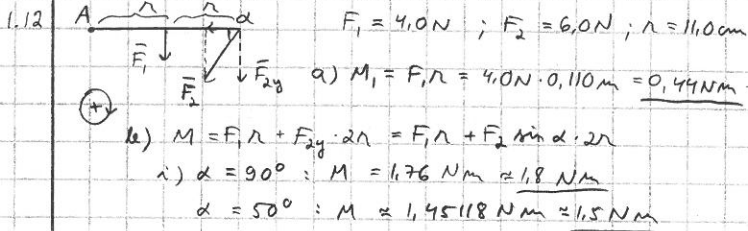 1.12 A r r α F₁ = 4,0N ; F₂ = 6,0N ; r = 11,0 cm
F̅₁ F̅₂ F̅₂y a) M₁ = F₁r = 4,0N · 0,110m = 0,44Nm.
+
b) M = F₁r + F₂y · 2r = F₁r + F₂ sin α · 2r
i) α = 90° : M = 1,76 Nm ≈ 1,8 Nm
α = 50° : M ≈ 1,45118 Nm ≈ 1,5 Nm